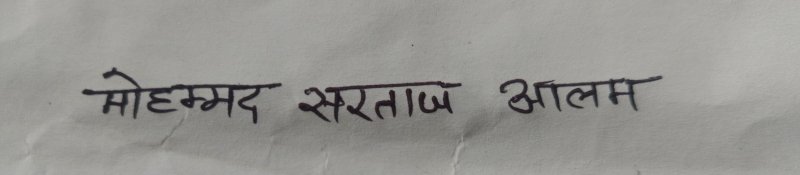 मोहम्मद सरताज आलम